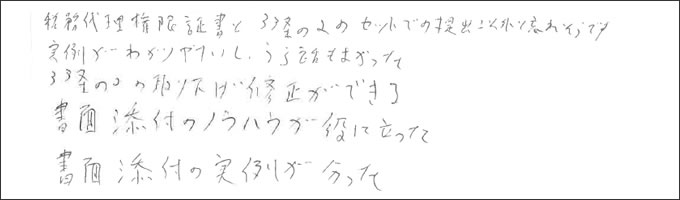 税務代理権限証書と33条の2のセットでの提出 忘れそうです
実例がわかりやすいし、うら話もよかった
33条の2の取り下げ修正ができる
書面添付のノウハウが役に立った
書面添付の実例が分った